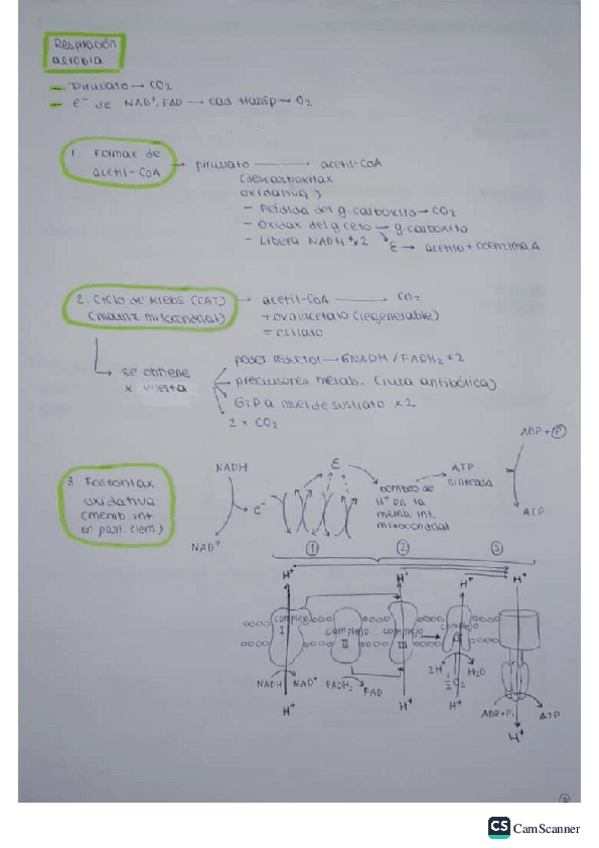 Respiración
aerobia
– Piruvato → CO2
– e⁻ de NAD⁺, FAD → cad transp → O2
1. Formax de
acetil-CoA → piruvato → acetil-CoA
(descarboxilax
oxidativa)
– Pérdida del g. carboxilo → CO2
– Oxidax del g ceto → g carboxilo
– Libera NADH x2 ε → acetilo + coenzima A
2. Ciclo de Krebs (CAT) → acetil-CoA → CO2
(matriz mitocondrial) + oxalacetato (regenerable)
= citrato
se obtiene
x vuelta
poder reductor → 6NADH / FADH2 x2
precursores metab. (ruta anfibólica)
GTP a nivel de sustrato x2
2 x CO2
3. Fosforilax
oxidativa
(memb. int
en part. elem.)
NADH
NAD⁺
e⁻
ε
bombeo de
H⁺ en la
memb. int.
mitocondrial
ATP
sintetasa
ADP + P
ATP
1 2 3
H⁺ H⁺ H⁺ H⁺
complejo
I
complejo
II
complejo
III
complejo
NADH NAD⁺ FADH2 FAD
2H⁺ ½O2 H2O
ADP + Pi ATP
H⁺ H⁺ H⁺ H⁺
CS CamScanner